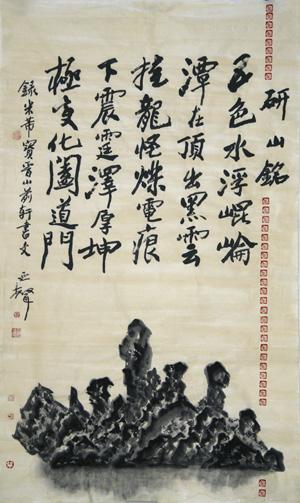 研山銘
五色水浮崐崘
潭在頂出黑雲
挂龍怪爍電痕
下震霆澤厚坤
極變化闔道門
錄米芾寶晉山前軒書文